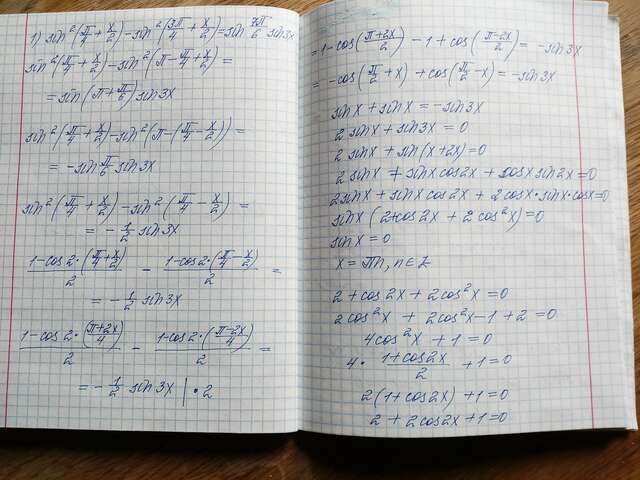 1) sin²(π/4 + x/2) - sin²(3π/4 + x/2) = sin 7π/6 sin3x
sin²(π/4 + x/2) - sin²(π - π/4 + x/2) =
= sin(π + π/6) sin3x
sin²(π/4 + x/2) - sin²(π - (π/4 - x/2)) =
= - sin π/6 sin3x
sin²(π/4 + x/2) - sin²(π/4 - x/2) =
= - 1/2 sin3x
(1-cos2·(π/4 + x/2))/2 - (1-cos2·(π/4 - x/2))/2 =
= - 1/2 sin3x
(1-cos2·((π+2x)/4))/2 - (1-cos2·((π-2x)/4))/2 =
= - 1/2 sin3x | · 2
= 1 - cos((π+2x)/2) - 1 + cos((π-2x)/2) = - sin3x
= - cos(π/2 + x) + cos(π/2 - x) = - sin3x
sinx + sinx = - sin3x
2 sinx + sin3x = 0
2 sinx + sin(x+2x) = 0
2 sinx + sinx cos2x + cosx sin2x = 0
2sinx + sinx cos2x + 2cosx·sinx·cosx = 0
sinx (2+cos2x + 2cos²x) = 0
sinx = 0
x = πn, n ∈ Z
2 + cos2x + 2cos²x = 0
2cos²x + 2cos²x - 1 + 2 = 0
4cos²x + 1 = 0
4 · (1+cos2x)/2 + 1 = 0
2(1+cos2x) + 1 = 0
2 + 2cos2x + 1 = 0